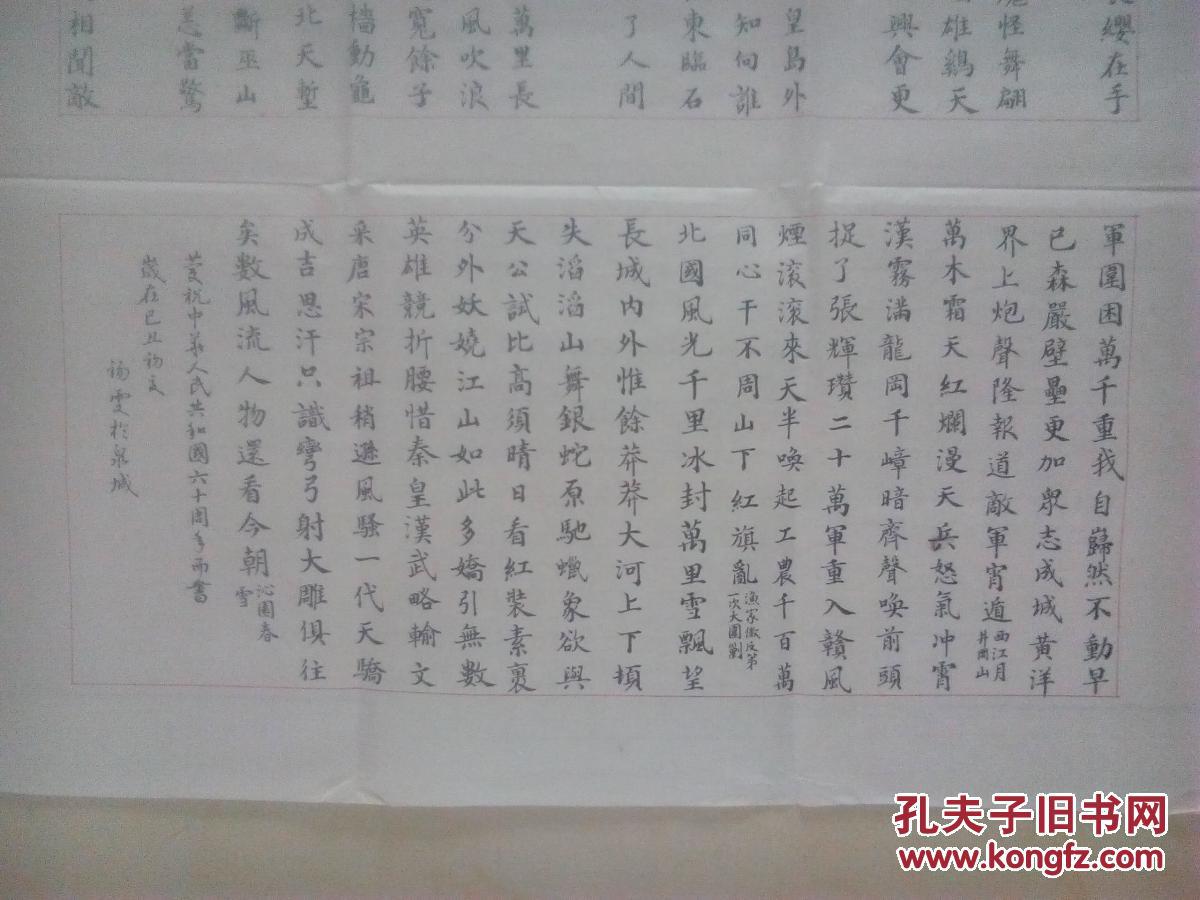 長纓在手
怪舞翩
雄鷄天
興會更
皇島外
知向誰
東臨石
了人間
萬里長
風吹浪
寬餘子
檣動龜
北天塹
斷巫山
恙當驚
相聞敵
軍圍困萬千重我自巋然不動早
已森嚴壁壘更加眾志成城黃洋
界上炮聲隆報道敵軍宵遁西江月井崗山
萬木霜天紅爛漫天兵怒氣冲霄
漢霧滿龍岡千嶂暗齊聲喚前頭
捉了張輝瓚二十萬軍重入贛風
煙滾滾來天半喚起工農千百萬
同心干不周山下紅旗亂漁家傲反第一次大圍剿
北國風光千里冰封萬里雪飄望
長城內外惟餘莽莽大河上下頓
失滔滔山舞銀蛇原馳蠟象欲與
天公試比高須晴日看紅裝素裹
分外妖嬈江山如此多嬌引無數
英雄競折腰惜秦皇漢武略輸文
采唐宋宗祖稍遜風騷一代天驕
成吉思汗只識彎弓射大雕俱往
矣數風流人物還看今朝沁園春雪
慶祝中華人民共和國六十周年而書
歲在己丑初
於泉城
孔夫子旧书网
www.kongfz.com